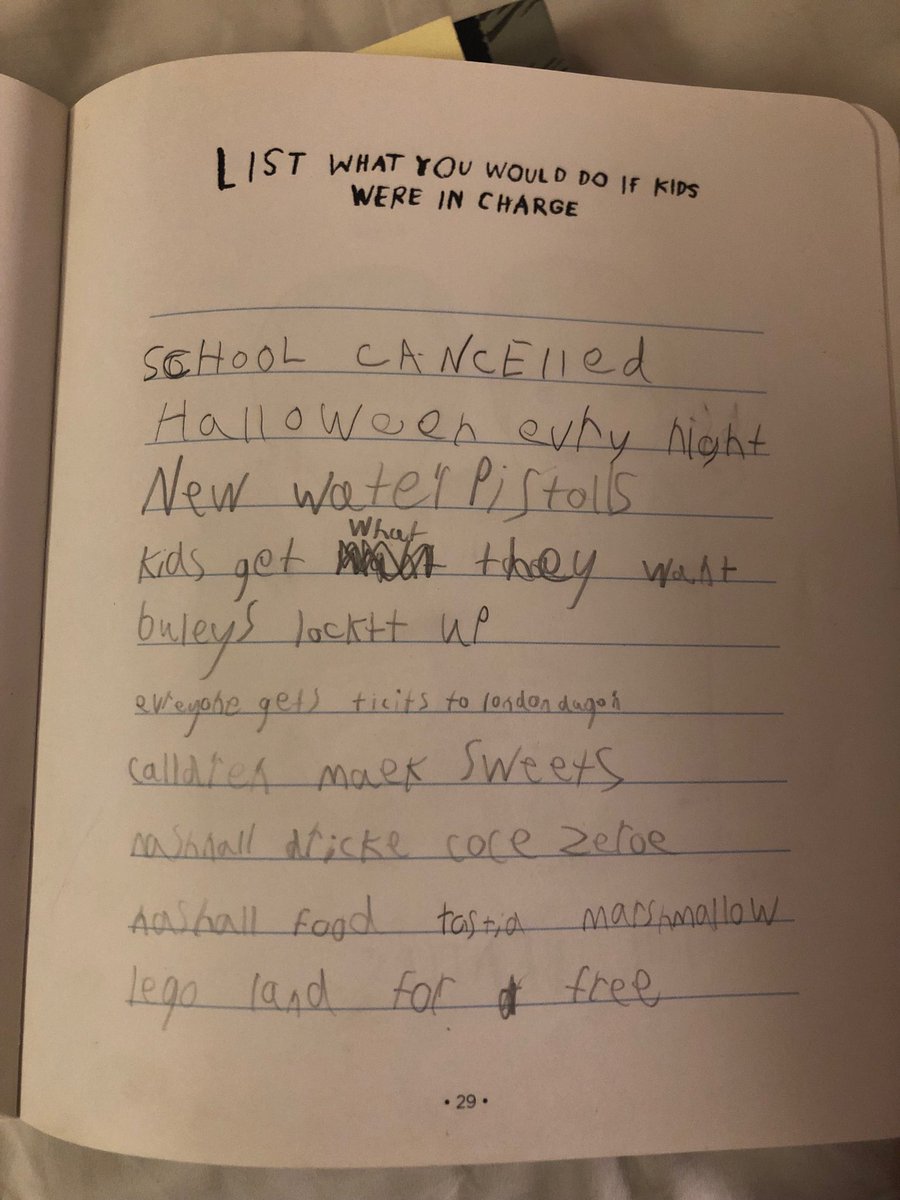 LIST WHAT YOU WOULD DO IF KIDS
WERE IN CHARGE
SCHOOL CANCElled
Halloween evry night
New water Pistolls
What
kids get they want
buleys locktt up
evreyone gets ticits to london dugon
calldren maek Sweets
nashnall dricke coce zeroe
nashall food tostid marshmallow
lego land for free
• 29 •